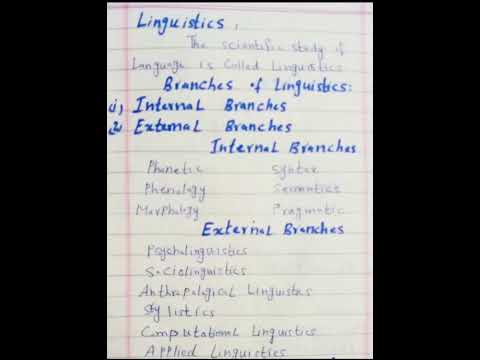 Linguistics,
The scientific study of
Language is Called Linguistics
Branches of Linguistics:
1, Internal Branches
2, External Branches
Internal Branches
Phonetic Syntax
Phenology Semantics
Morphology Pragmatic
External Branches
Psycholinguistics
Sociolinguistics
Anthropological Linguistics
Stylistics
Computational Linguistics
Applied Linguistics